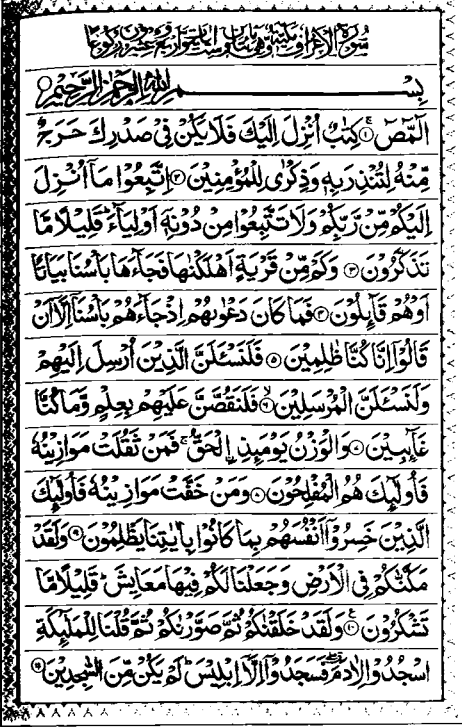 سُوْرَةُ الْاَعْرَافِ مَكِّيَّةٌ وَّهِيَ مِائَتَانِ وَسِتُّ اٰيَاتٍ وَّاَرْبَعٌ وَّعِشْرُوْنَ رُكُوْعًا
بِسْــــــــــــمِ اللّٰهِ الرَّحْمٰنِ الرَّحِيْمِ
الٓمّٓصٓ ۝١ كِتٰبٌ اُنْزِلَ اِلَيْكَ فَلَا يَكُنْ فِىْ صَدْرِكَ حَرَجٌ
مِّنْهُ لِتُنْذِرَ بِهٖ وَذِكْرٰى لِلْمُؤْمِنِيْنَ ۝٢ اِتَّبِعُوْا مَاۤ اُنْزِلَ
اِلَيْكُمْ مِّنْ رَّبِّكُمْ وَلَا تَتَّبِعُوْا مِنْ دُوْنِهٖۤ اَوْلِيَآءَ ؕ قَلِيْلًا مَّا
تَذَكَّرُوْنَ ۝٣ وَكَمْ مِّنْ قَرْيَةٍ اَهْلَكْنٰهَا فَجَآءَهَا بَاْسُنَا بَيَاتًا
اَوْ هُمْ قَآئِلُوْنَ ۝٤ فَمَا كَانَ دَعْوٰىهُمْ اِذْ جَآءَهُمْ بَاْسُنَاۤ اِلَّاۤ اَنْ
قَالُوْۤا اِنَّا كُنَّا ظٰلِمِيْنَ ۝٥ فَلَنَسْـَٔلَنَّ الَّذِيْنَ اُرْسِلَ اِلَيْهِمْ
وَلَنَسْـَٔلَنَّ الْمُرْسَلِيْنَ ۝٦ فَلَنَقُصَّنَّ عَلَيْهِمْ بِعِلْمٍ وَّمَا كُنَّا
غَآئِبِيْنَ ۝٧ وَالْوَزْنُ يَوْمَئِذِ ِۨالْحَقُّ ۚ فَمَنْ ثَقُلَتْ مَوَازِيْنُهٗ
فَاُولٰٓئِكَ هُمُ الْمُفْلِحُوْنَ ۝٨ وَمَنْ خَفَّتْ مَوَازِيْنُهٗ فَاُولٰٓئِكَ
الَّذِيْنَ خَسِرُوْۤا اَنْفُسَهُمْ بِمَا كَانُوْا بِاٰيٰتِنَا يَظْلِمُوْنَ ۝٩ وَلَقَدْ
مَكَّنّٰكُمْ فِى الْاَرْضِ وَجَعَلْنَا لَكُمْ فِيْهَا مَعَايِشَ ؕ قَلِيْلًا مَّا
تَشْكُرُوْنَ ۝١٠ وَلَقَدْ خَلَقْنٰكُمْ ثُمَّ صَوَّرْنٰكُمْ ثُمَّ قُلْنَا لِلْمَلٰٓئِكَةِ
اسْجُدُوْا لِاٰدَمَ ۖ فَسَجَدُوْۤا اِلَّاۤ اِبْلِيْسَ ؕ لَمْ يَكُنْ مِّنَ السّٰجِدِيْنَ ۝١١